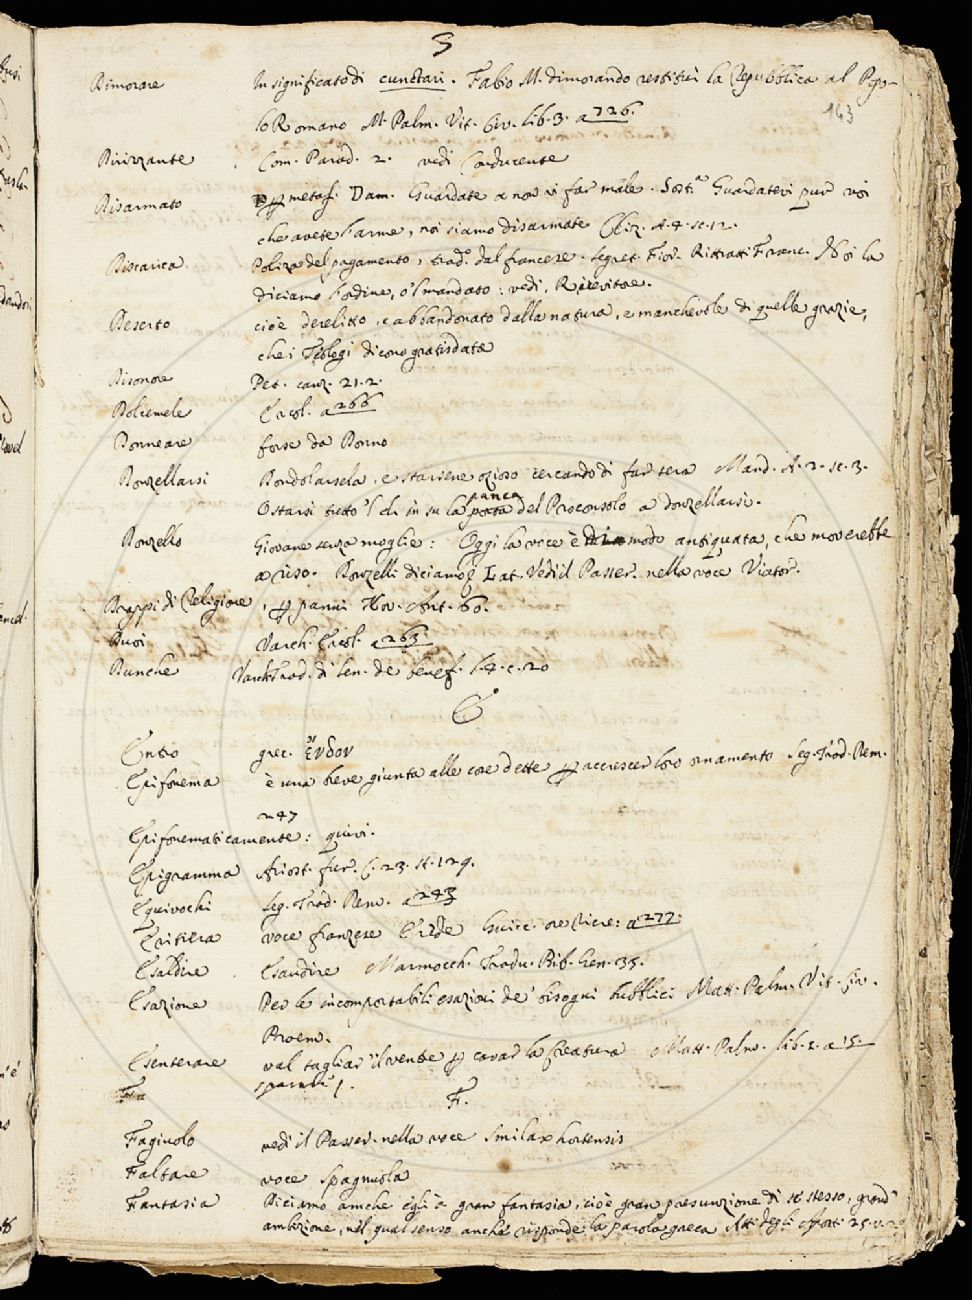 D
Dimorare In significato di cunctari. Fabio M. dimorando restituì la Repubblica al Popo-
143
lo Romano M. Palm. Vit. Civ. lib. 3. a 726.
Dirizzante Com. Parad. 2. vedi Conducente
Disarmato Dam. Guardate a non vi far male. Guardatevi pur voi
che avete l'arme, noi siamo disarmate Cliz. A. 4. sc. 12.
Discarica Poliza del pagamento, trad. dal francese. Segret. Fior. Ritratti Franc. Noi la
diciamo l'ordine, o 'l mandato: vedi,
Deserto cioè derelitto, e abbandonato dalla natura, e manchevole di quelle grazie,
che i Teologi dicono gratisdatae
Disonore Pet. canz. 21. 2.
Dolcemele Ercol. a 266
Donneare forse da Donno
Donzellarsi Dondolarsela, e starsene ozioso cercando di far sera Mand. A. 2. sc. 3.
panca
O starsi tutto 'l dì in su la porta del Proconsolo a donzellarsi.
Donzello Giovane senza moglie: Oggi la voce è modo antiquata, che moverebbe
a riso. Donzelli diciamo Lat. Vedi il Passer. nella voce Viator.
Drappi di Religione, panni Nov. Ant. 60.
Dusi Varch. Ercol. a 263.
Dunche Varch. Trad. di Sen. de benef. l. 4. c. 20
E
Entro grec. ἔνδον
Epifonema è una breve giunta alle cose dette accrescer loro ornamento Seg. Trad. Dem.
247
Epifonematicamente: quivi.
Epigramma Ariost. fur. C. 23. st. 129.
Equivochi Seg. Trad. Dem. a 243
voce franzese Erede Guicc. a 277.
Esaldire Esaudire Marmocch. Tradu. Bib. Gen. 35.
Esazione Per le incomportabili esazioni de' bisogni pubblici Matt. Palm. Vit. Civ.
Proem.
Esenterare val tagliar il ventre cavar la creatura Matt. Palm. lib. 1. a 15.
Fa
F.
Fagiuolo vedi il Passer. nella voce Smilax hortensis
Faltare voce spagnuola
Fantasia Diciamo anche egli à gran fantasia, cioè gran presunzione di se stesso, grand'
ambizione, nel qual senso anche risponde la parola greca Atti degli Apost. 25. v. 23